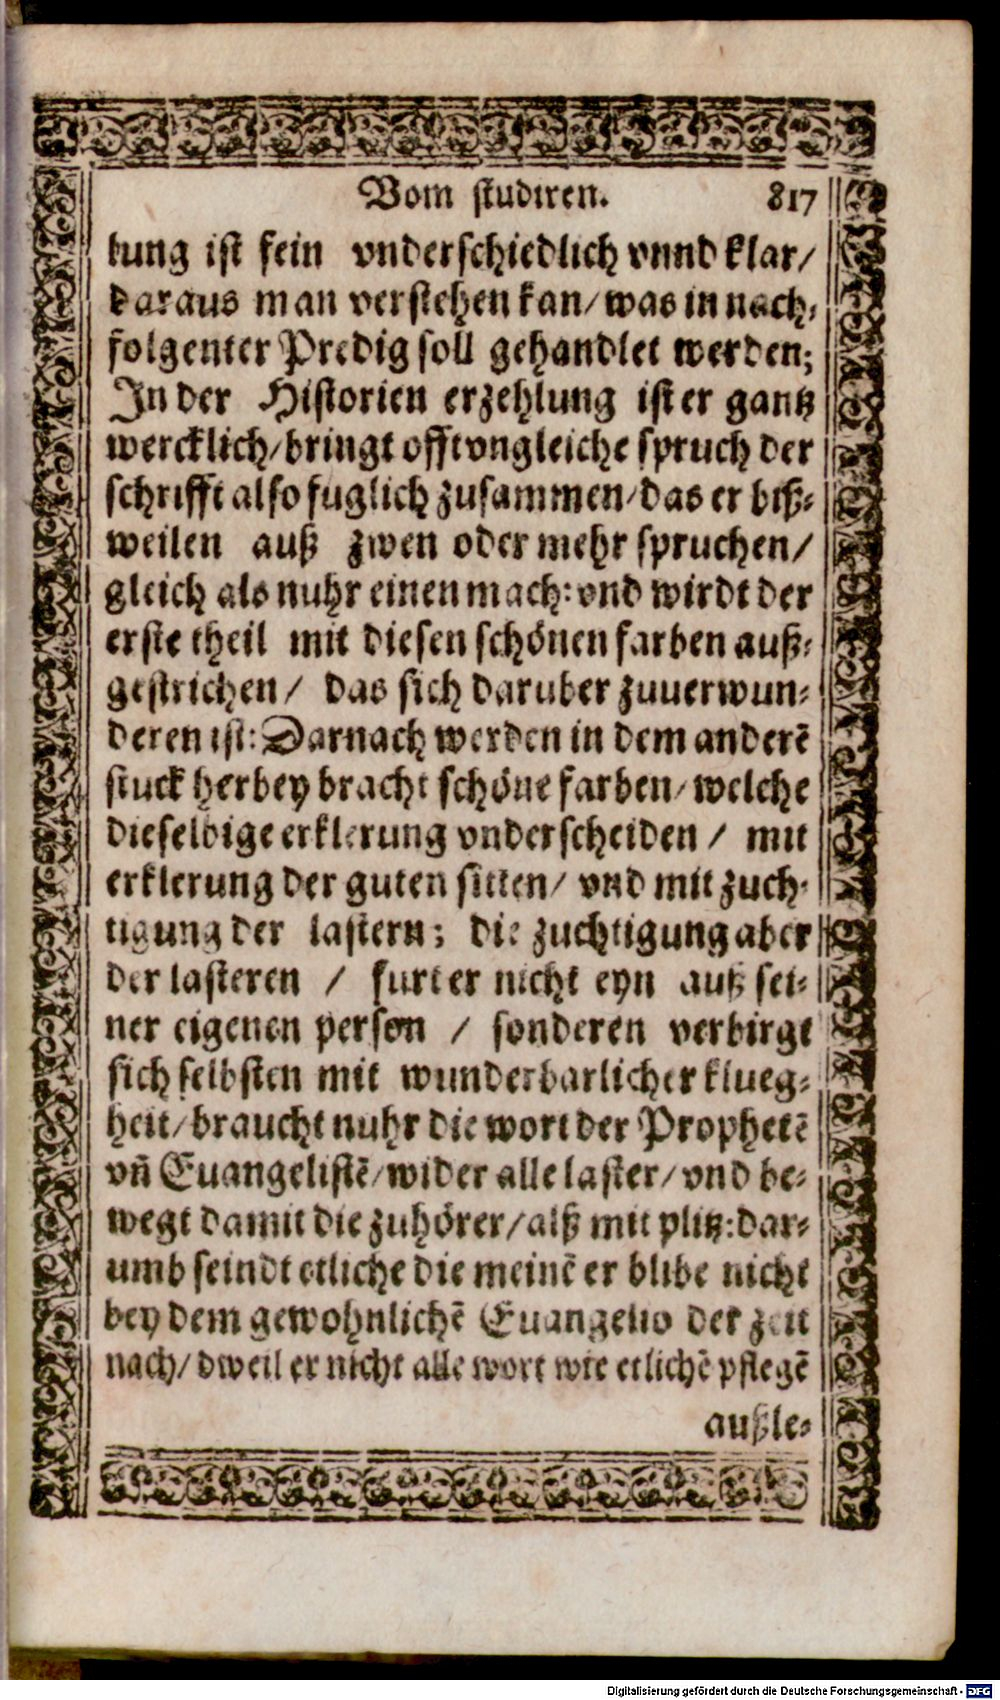 Vom studiren. 817
tung ist fein vnderschiedlich vnnd klar/
daraus man verstehen kan/ was in nach⸗
folgenter Predig soll gehandlet werden;
In der Historien erzehlung ist er gantz
wercklich/ bringt offt vngleiche spruch der
schrifft also fuglich zusammen/ das er biß⸗
weilen auß zwen oder mehr spruchen/
gleich als nuhr einen mach: vnd wirdt der
erste theil mit diesen schönen farben auß⸗
gestrichen/ das sich daruber zuuerwun⸗
deren ist: Darnach werden in dem anderẽ
stuck herbey bracht schöne farben/ welche
dieselbige erklerung vnderscheiden / mit
erklerung der guten sitten/ vnd mit zuch⸗
tigung der lastern; die zuchtigung aber
der lasteren / furt er nicht eyn auß sei⸗
ner eigenen person / sonderen verbirgt
sich selbsten mit wunderbarlicher klueg⸗
heit/ braucht nuhr die wort der Prophetẽ
vñ Euangelistẽ/ wider alle laster/ vnd be⸗
wegt damit die zuhörer/ alß mit plitz: dar⸗
umb seindt etliche die meinẽ er blibe nicht
bey dem gewohnlichẽ Euangelio der zeit
nach/ dweil er nicht alle wort wie etlichẽ pflegẽ
außle⸗
Digitalisierung gefördert durch die Deutsche Forschungsgemeinschaft - DFG